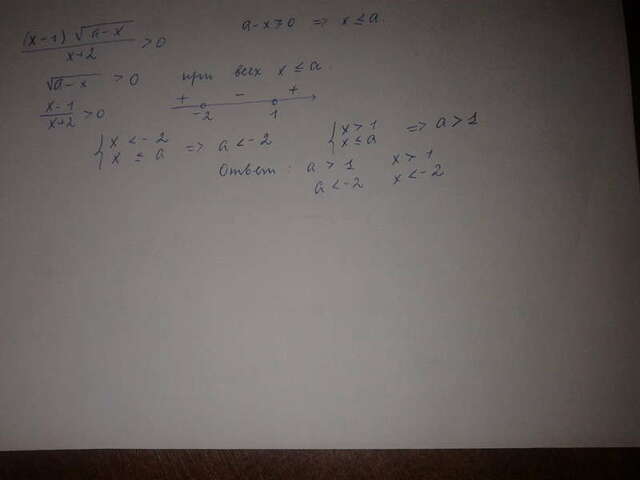 (x-1) √(a-x) / x+2 > 0     a-x ≥ 0 => x ≤ a
√(a-x) > 0     при всех x ≤ a.
x-1 / x+2 > 0     + -2 - 1 +
{ x < -2
x ≤ a => a < -2
{ x > 1
x ≤ a => a > 1
Ответ: a > 1     x > 1
a < -2     x < -2